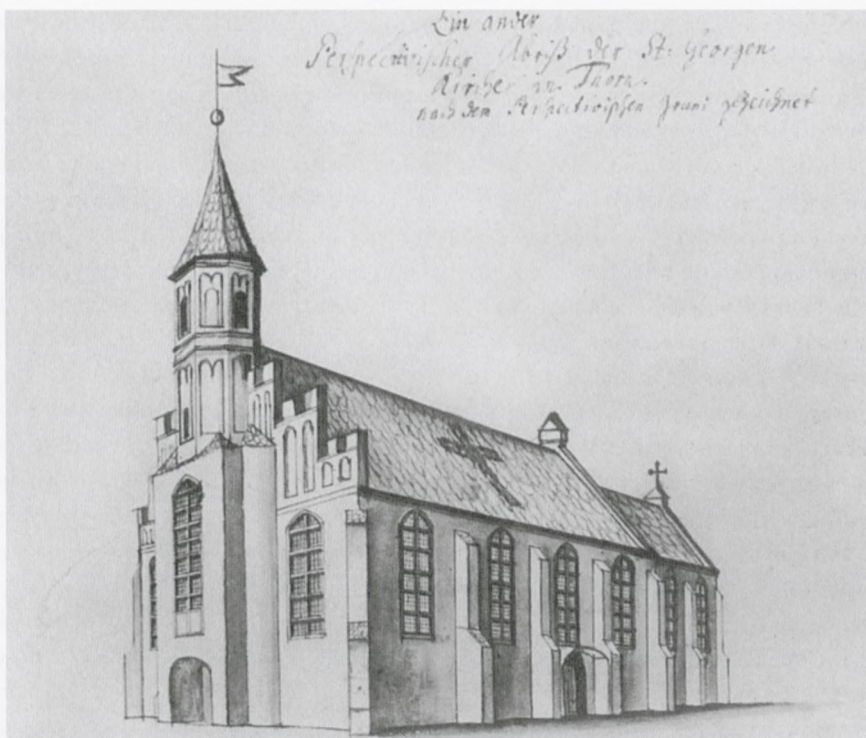 Ein ander
Perspectivischer Abriß der St. Georgen
Kirche in Thorn.
nach dem Perspectivischen gezeichnet